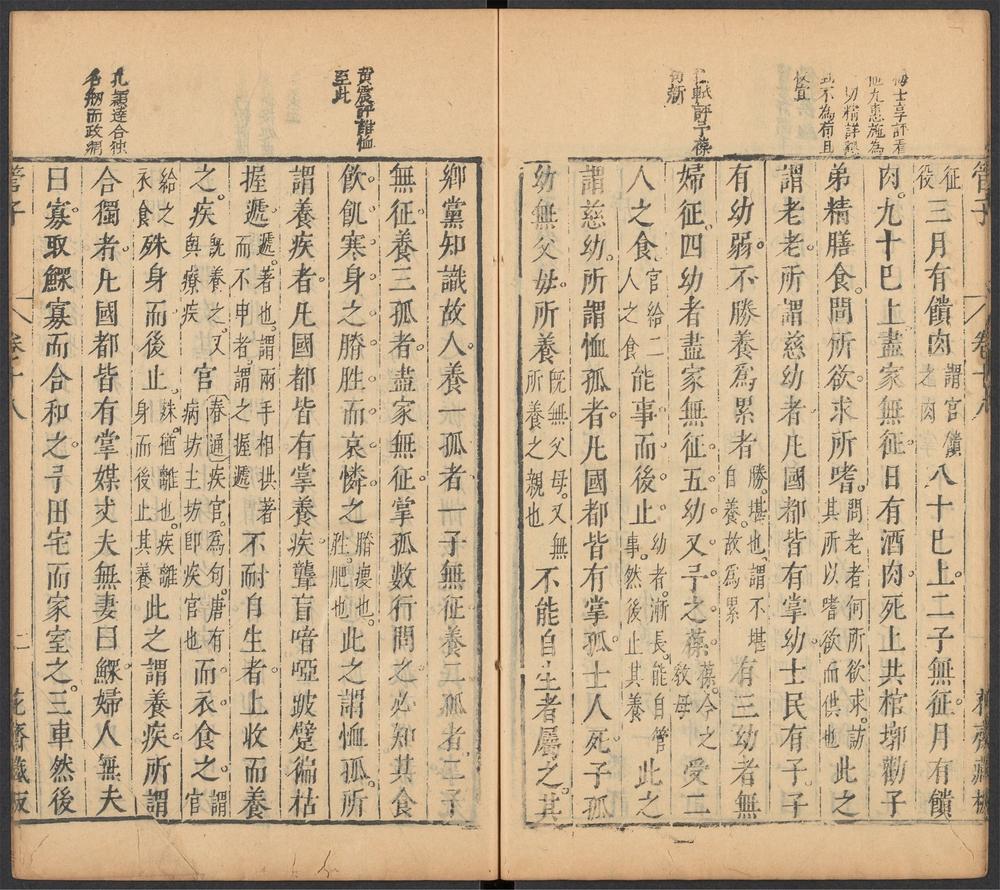 管子 卷十八 花齋藏板
征役三月有饋肉謂官饋之肉八十巳上二子無征月有饋
肉九十巳上盡家無征日有酒肉死上共棺槨勸子
弟精膳食問所欲求所嗜問老者何所欲求訪其所以嗜欲而供也此之
謂老老所謂慈幼者凡國都皆有掌幼士民有子子
有幼弱不勝養爲累者勝堪也謂不堪自養故爲累有三幼者無
婦征四幼者盡家無征五幼又予之葆葆今之教母受二
人之食官給二人之食能事而後止幼者漸長能自管事然後止其養此之
謂慈幼所謂恤孤者凡國都皆有掌孤士人死子孤
幼無父母所養既無父母又無所養之親也不能自生者屬之其
梅士享評看他九惠施為
切精詳
不為苟且
評予葆
新
鄉黨知識故人養一孤者一子無征養二孤者二子
無征養三孤者盡家無征掌孤數行問之必知其食
飲飢寒身之膌胜而哀憐之膌瘦也胜肥也此之謂恤孤所
謂養疾者凡國都皆有掌養疾聾盲喑啞跛躄偏枯
握遞遞著也謂兩手相拱著而不申者謂之握遞不耐自生者上收而養
之疾官既養之又與療疾春通疾官爲句唐有病坊主坊即疾官也而衣食之謂官
給之衣食殊身而後止殊猶離也疾離身而後止其養此之謂養疾所謂
合獨者凡國都皆有掌媒丈夫無妻曰鰥婦人無夫
曰寡取鰥寡而合和之予田宅而家室之三車然後
管子 卷十八 二 花齋藏板
黃震評誰恤
至此
孔穎達合獨
名